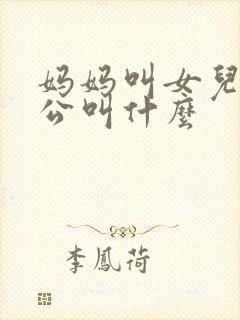 妈妈叫女兒
公叫什麼
李鳳荷